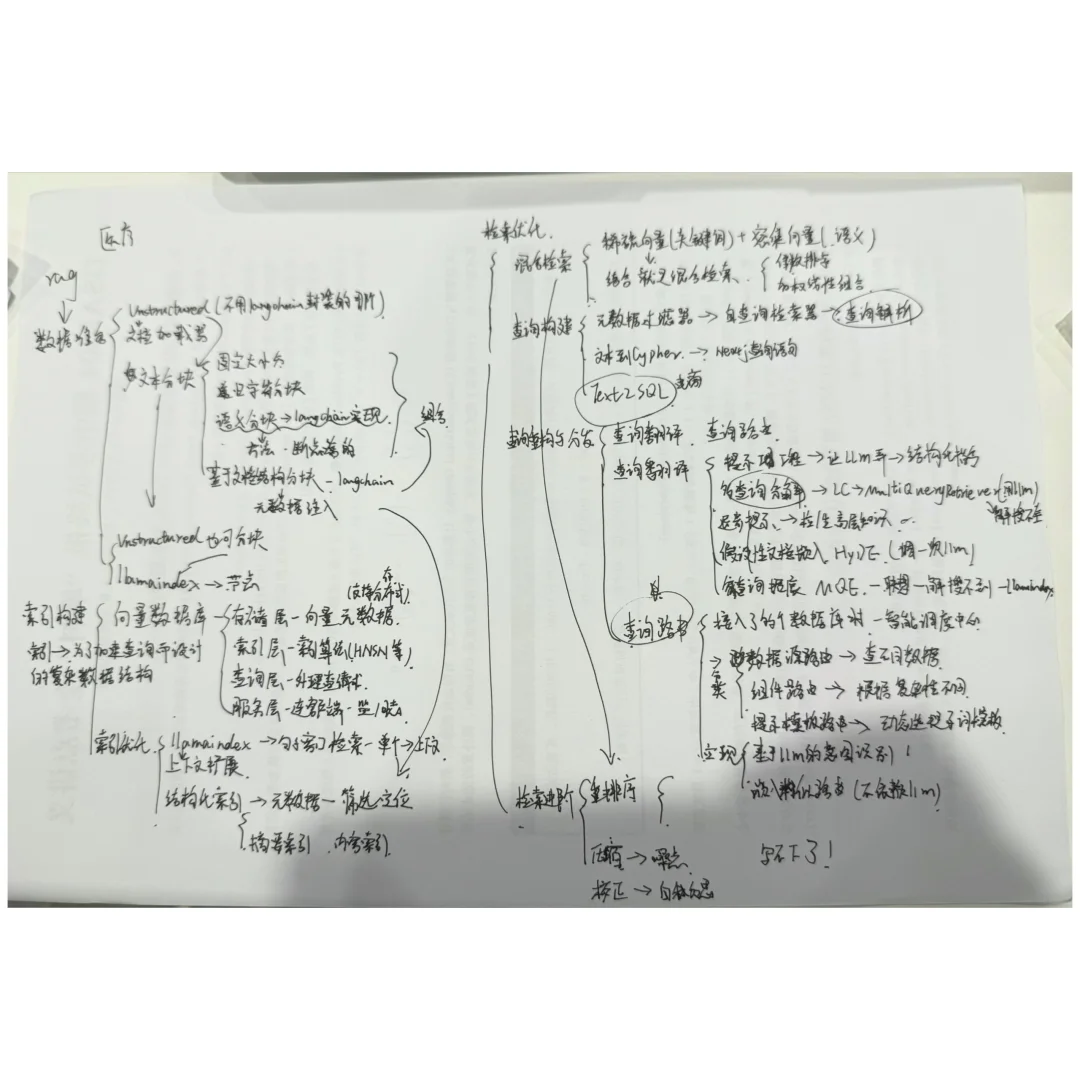 医疗
rag
数据准备
Unstructured (不用langchain封装的
文档加载器
文本分块
固定大小分
递归字符分块
语义分块→langchain实现
方法·断点
组合
基于文档结构分块-langchain
元数据注入
Unstructured也可分块
llamaindex→节点
索引构建
索引→为了加速查询而设计
的复杂数据结构
向量数据库
(支持分布式)
存
存储层-向量 元数据
索引层-索引算法(HNSW等)
查询层-处理查询
服务层-连客户端-
索引优化
llamaindex→句子窗口检索-单个→上下文
上下文扩展
结构化索引→元数据-筛选定位
摘要索引 . 内容索引
检索优化.
混合检索
稀疏向量(关键词)+密集向量(语义)
结合就是混合检索.
倒数排序
加权线性组合
查询构建
元数据过滤器→自查询检索器→查询解析
文本到Cypher.→Neo4j查询语句
Text2SQL
查询重构与分发
查询翻译.查询路由
查询翻译
提示词工程→让LLm弄→结构化
多查询分解→LC→MultiQueryRetriever(用llm)
退步提示.→检/生高层知识
假设性文档嵌入 HyDE(调一次llm)
查询扩展 MQE.
llamaindex
查询路由
接入了多个数据库时-智能调度中心
分类
数据源路由→查不同数据.
组件路由→根据复杂性不同
提示模板路由→动态选提示词模板
实现
基于llm的意图识别
嵌入相似路由(不依赖llm)
检索进阶
重排序
压缩→噪点.
校正→自我反思
写不下了!